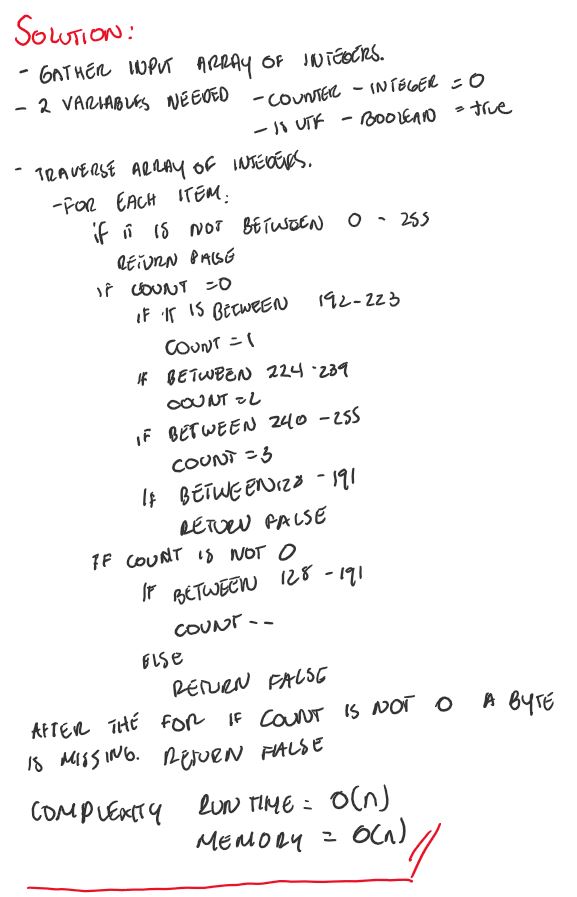 SOLUTION:
- GATHER INPUT ARRAY OF INTEGERS.
- 2 VARIABLES NEEDED - COUNTER - INTEGER = 0
- IS UTF - BOOLEAN = true
- TRAVERSE ARRAY OF INTEGERS.
- FOR EACH ITEM:
if it IS NOT BETWEEN 0 - 255
RETURN FALSE
IF COUNT = 0
IF IT IS BETWEEN 192-223
COUNT = 1
IF BETWEEN 224-239
COUNT = 2
IF BETWEEN 240 - 255
COUNT = 3
IF BETWEEN 128 - 191
RETURN FALSE
IF COUNT IS NOT 0
IF BETWEEN 128 - 191
COUNT --
ELSE
RETURN FALSE
AFTER THE FOR IF COUNT IS NOT 0 A BYTE
IS MISSING. RETURN FALSE
COMPLEXITY RUN TIME = O(n)
MEMORY = O(n)